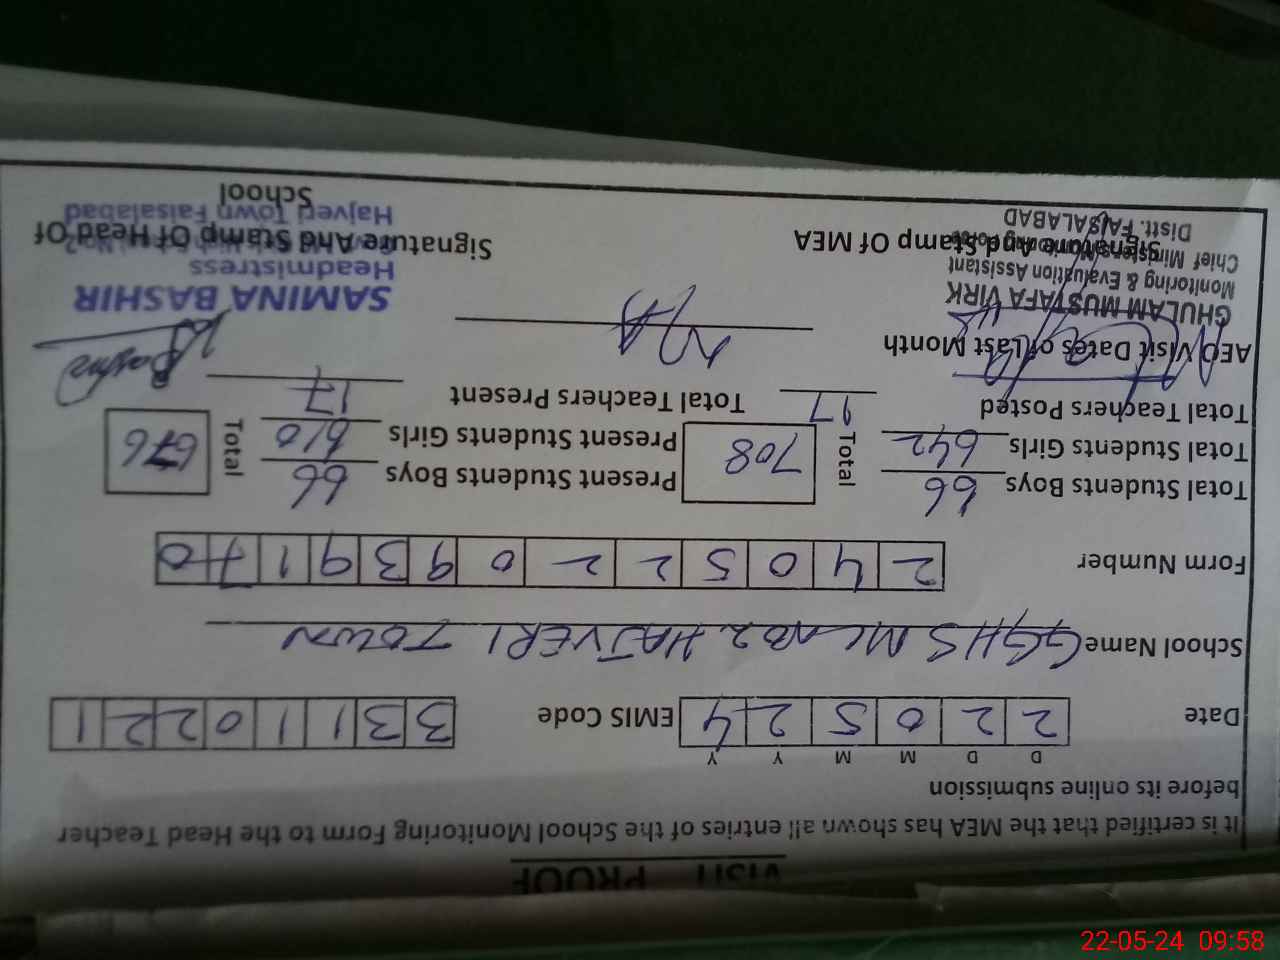 VISIT PROOF
It is certified that the MEA has shown all entries of the School Monitoring Form to the Head Teacher
before its online submission
D D M M Y Y
Date 2 2 0 5 2 4 EMIS Code 3 3 1 1 0 2 2 1
School Name GGHS MC NO 2 HAJVERI TOWN
Form Number 2 4 0 5 2 2 0 9 3 9 1 7 0
Total Students Boys 66 Total 708 Present Students Boys 66 Total 676
Total Students Girls 642 Present Students Girls 610
Total Teachers Posted 17 Total Teachers Present 17
AEO Visit Dates of Last Month Bashir
GHULAM MUSTAFA VIRK SAMINA BASHIR
Monitoring & Evaluation Assistant Headmistress
Chief Minister's Monitoring
Signature And Stamp Of MEA Signature And Stamp Of Head Of
Distt. FAISALABAD Hajveri Town Faisalabad
School
22-05-24 09:58